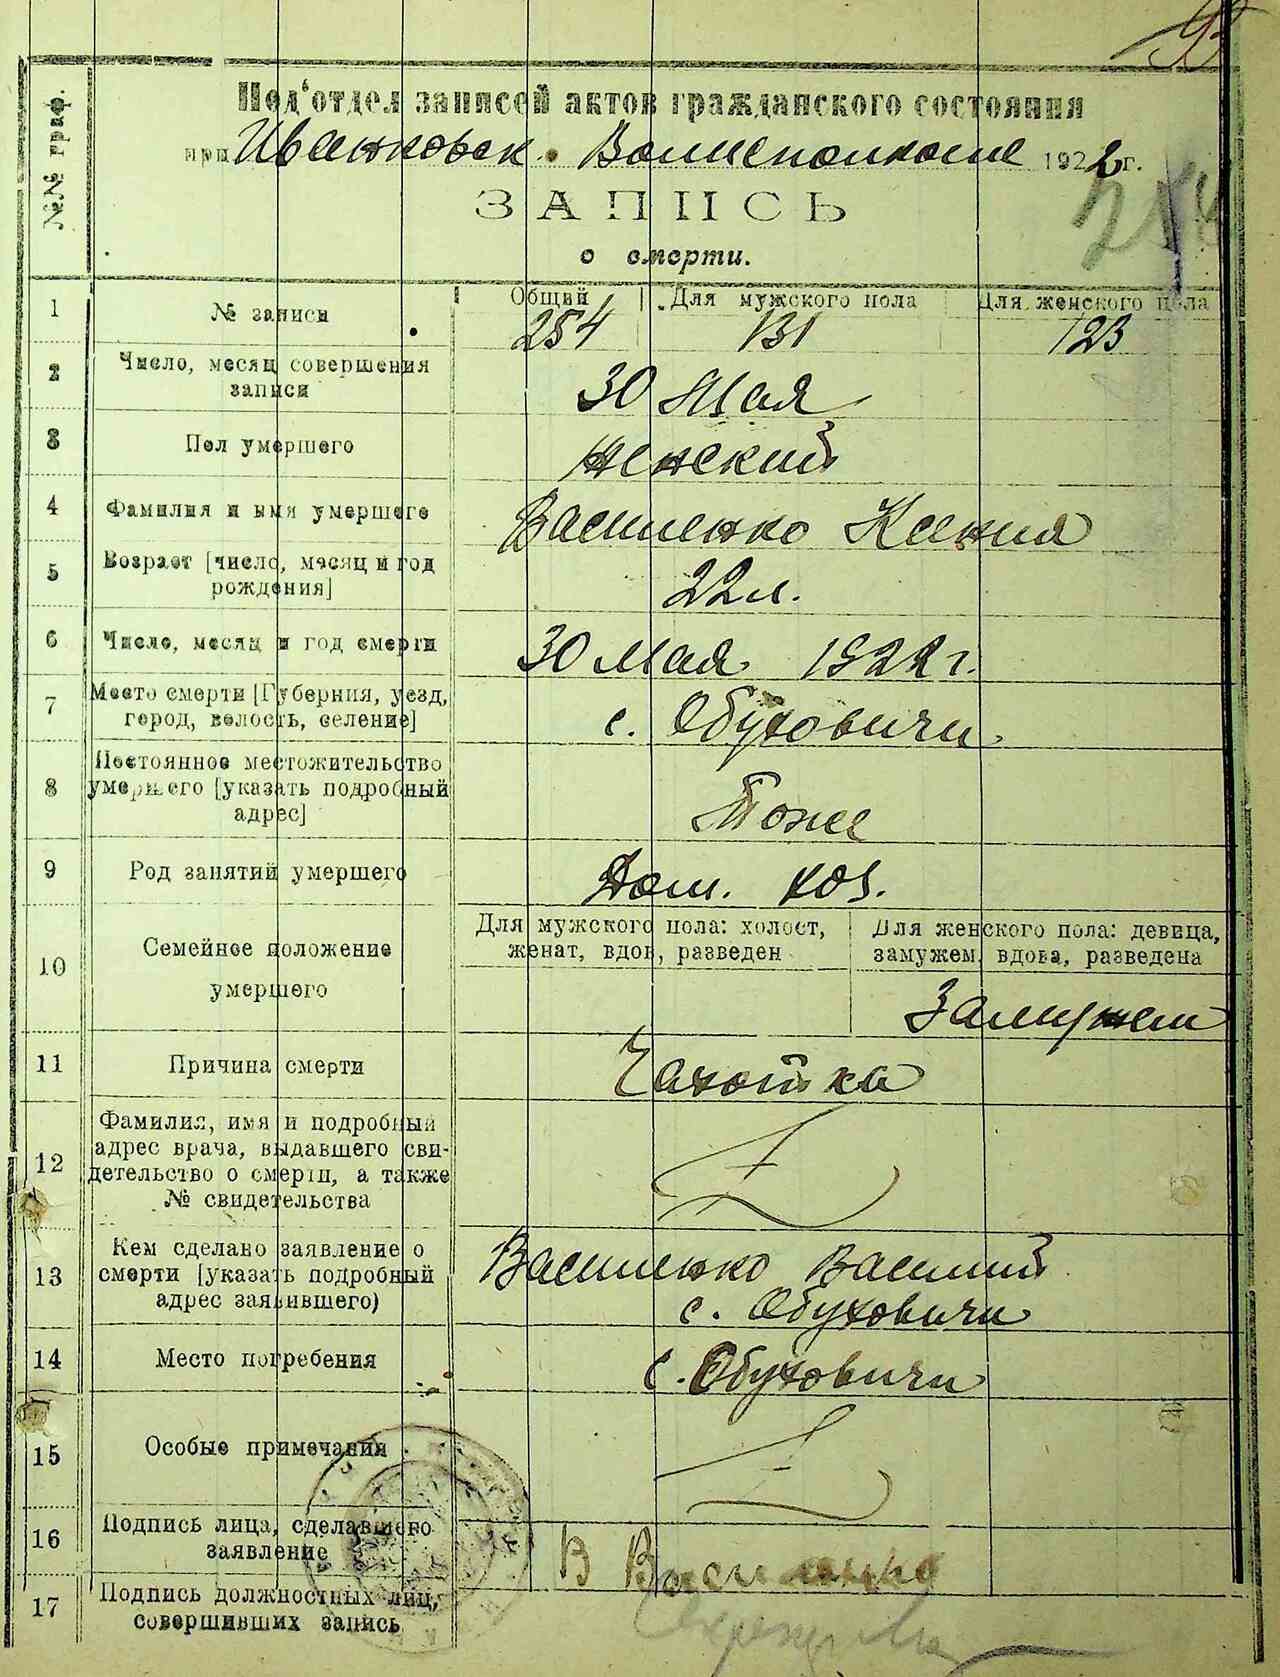 Под'отдел записей актов гражданского состояния
при Иванковск. Волисполкоме 1922 г.
ЗАПИСЬ
о смерти.
№№ граф.
1 № записи Общий Для мужского пола Для женского пола
254 131 123
2 Число, месяц совершения
записи 30 Мая
3 Пол умершего женский
4 Фамилия и имя умершего Василенко Ксения
5 Возраст [число, месяц и год
рождения] 22 л.
6 Число, месяц и год смерти 30 Мая 1922 г.
7 Место смерти [Губерния, уезд,
город, волость, селение] с. Обуховичи
8 Постоянное местожительство
умершего [указать подробный
адрес] Тоже
9 Род занятий умершего Дом. хоз.
10 Семейное положение
умершего
Для мужского пола: холост,
женат, вдов, разведен
Для женского пола: девица,
замужем, вдова, разведена
Замужем
11 Причина смерти Чахотка
12 Фамилия, имя и подробный
адрес врача, выдавшего сви-
детельство о смерти, а также
№ свидетельства
13 Кем сделано заявление о
смерти [указать подробный
адрес заявившего)
Василенко Василий
с. Обуховичи
14 Место погребения с. Обуховичи
15 Особые примечания
16 Подпись лица, сделавшего
заявление В Василенко
17 Подпись должностных лиц,
совершивших запись